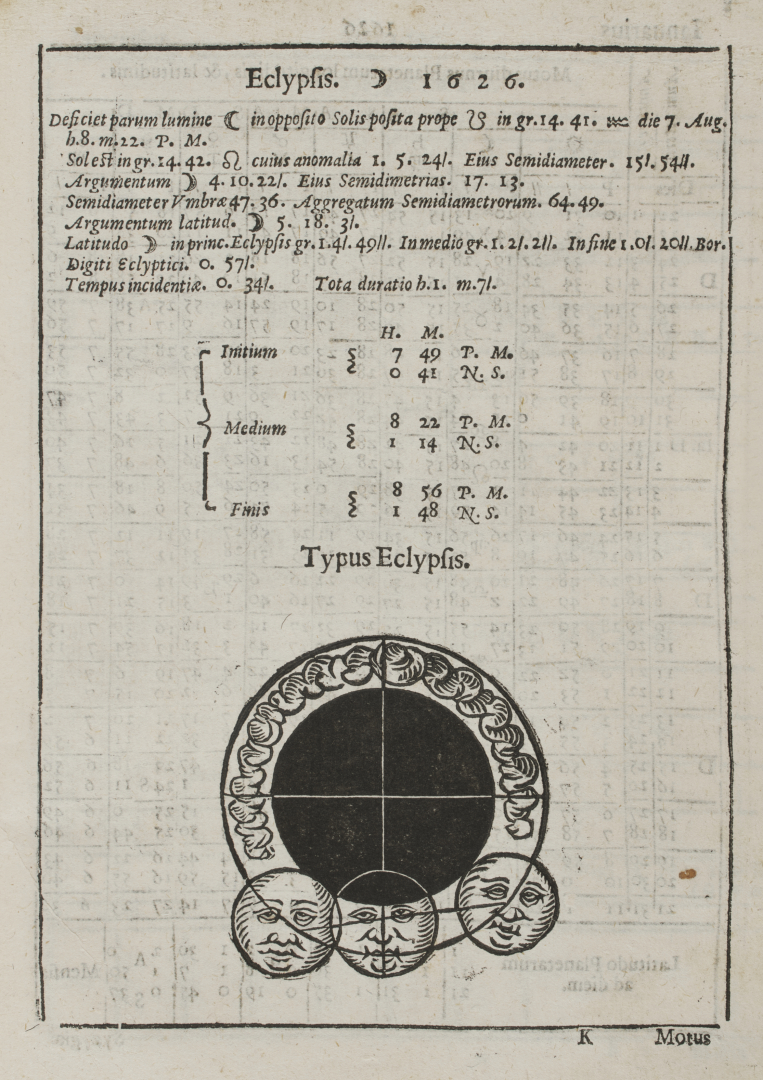 Eclypſis. ☽ 1626.
Deficiet parum lumine ☾ in oppoſito Solis poſita prope ☋ in gr. 14. 41. ♒ die 7. Aug.
h. 8. m. 22. P. M.
Sol eſt in gr. 14. 42. ♌ cuius anomalia 1. 5. 24/. Eius Semidiameter. 15/. 54//.
Argumentum ☽ 4. 10. 22/. Eius Semidimetrias. 17. 13.
Semidiameter Vmbræ 47. 36. Aggregatum Semidiametrorum. 64. 49.
Argumentum latitud. ☽ 5. 18. 3/.
Latitudo ☽ in princ. Eclypſis gr. 1. 4/. 49//. In medio gr. 1. 2/. 2//. In fine 1. 0/. 20//. Bor.
Digiti Ecliptici. 0. 57/.
Tempus incidentiæ. 0. 34/. Tota duratio h. 1. m. 7/.
H. M.
Initium 7 49 P. M.
0 41 N. S.
Medium 8 22 P. M.
1 14 N. S.
8 56 P. M.
Finis 1 48 N. S.
Typus Eclypſis.
K Motus